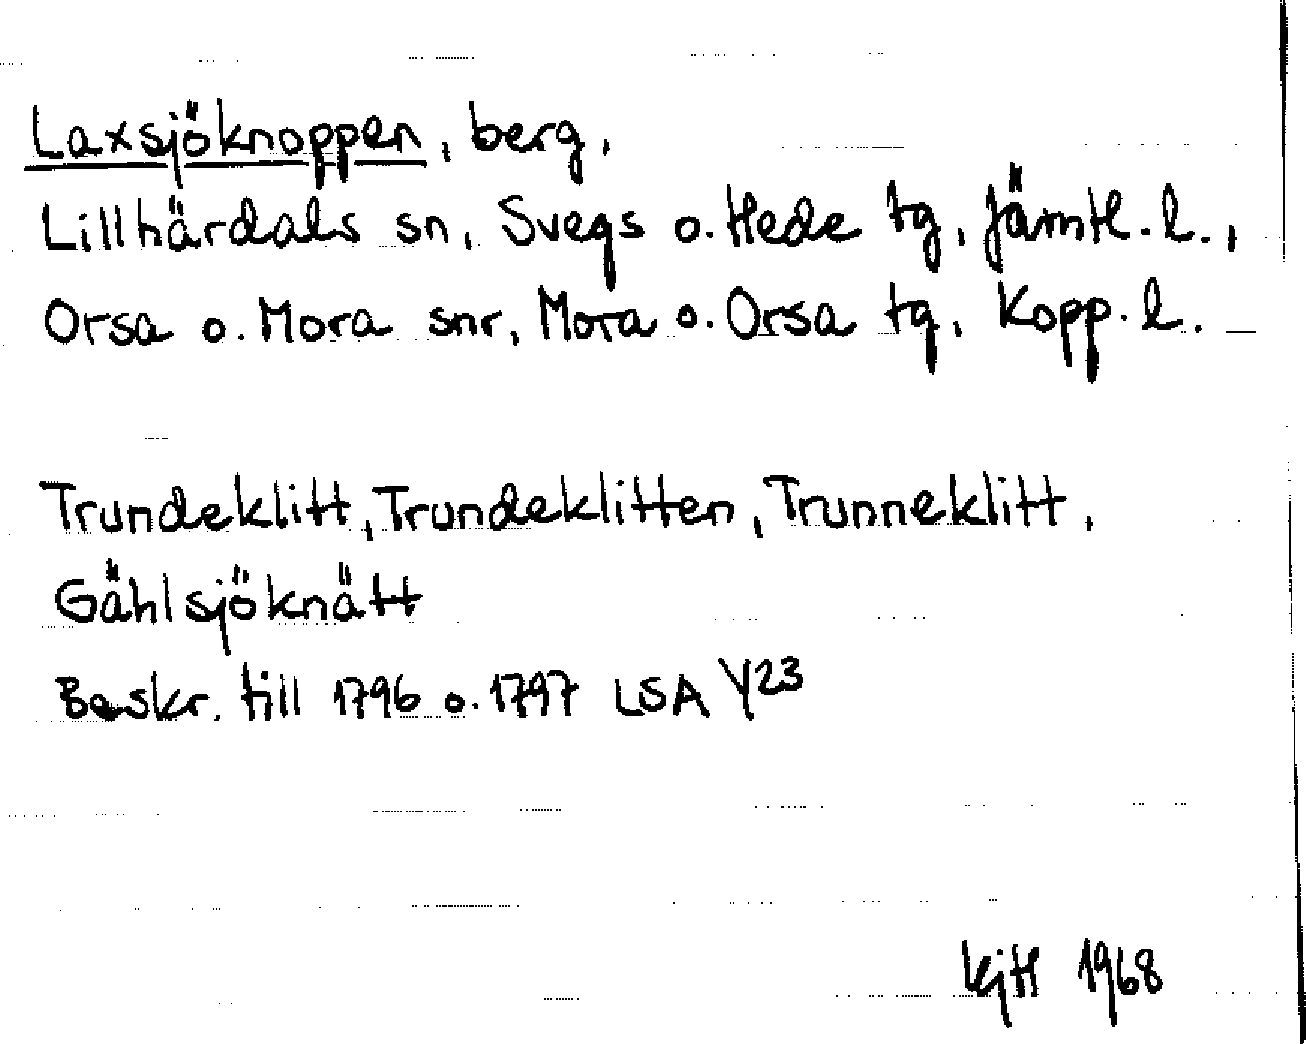 Laxsjöknoppen, berg,
Lillhärdals sn, Svegs o. Hede tg, Jämtl. l.,
Orsa o. Mora snr, Mora o. Orsa tg, Kopp. l. —
Trundeklitt, Trundeklitten, Trunneklitt,
Gåhlsjöknätt
Beskr. till 1796 o. 1797 LSA Y23
KjH 1968